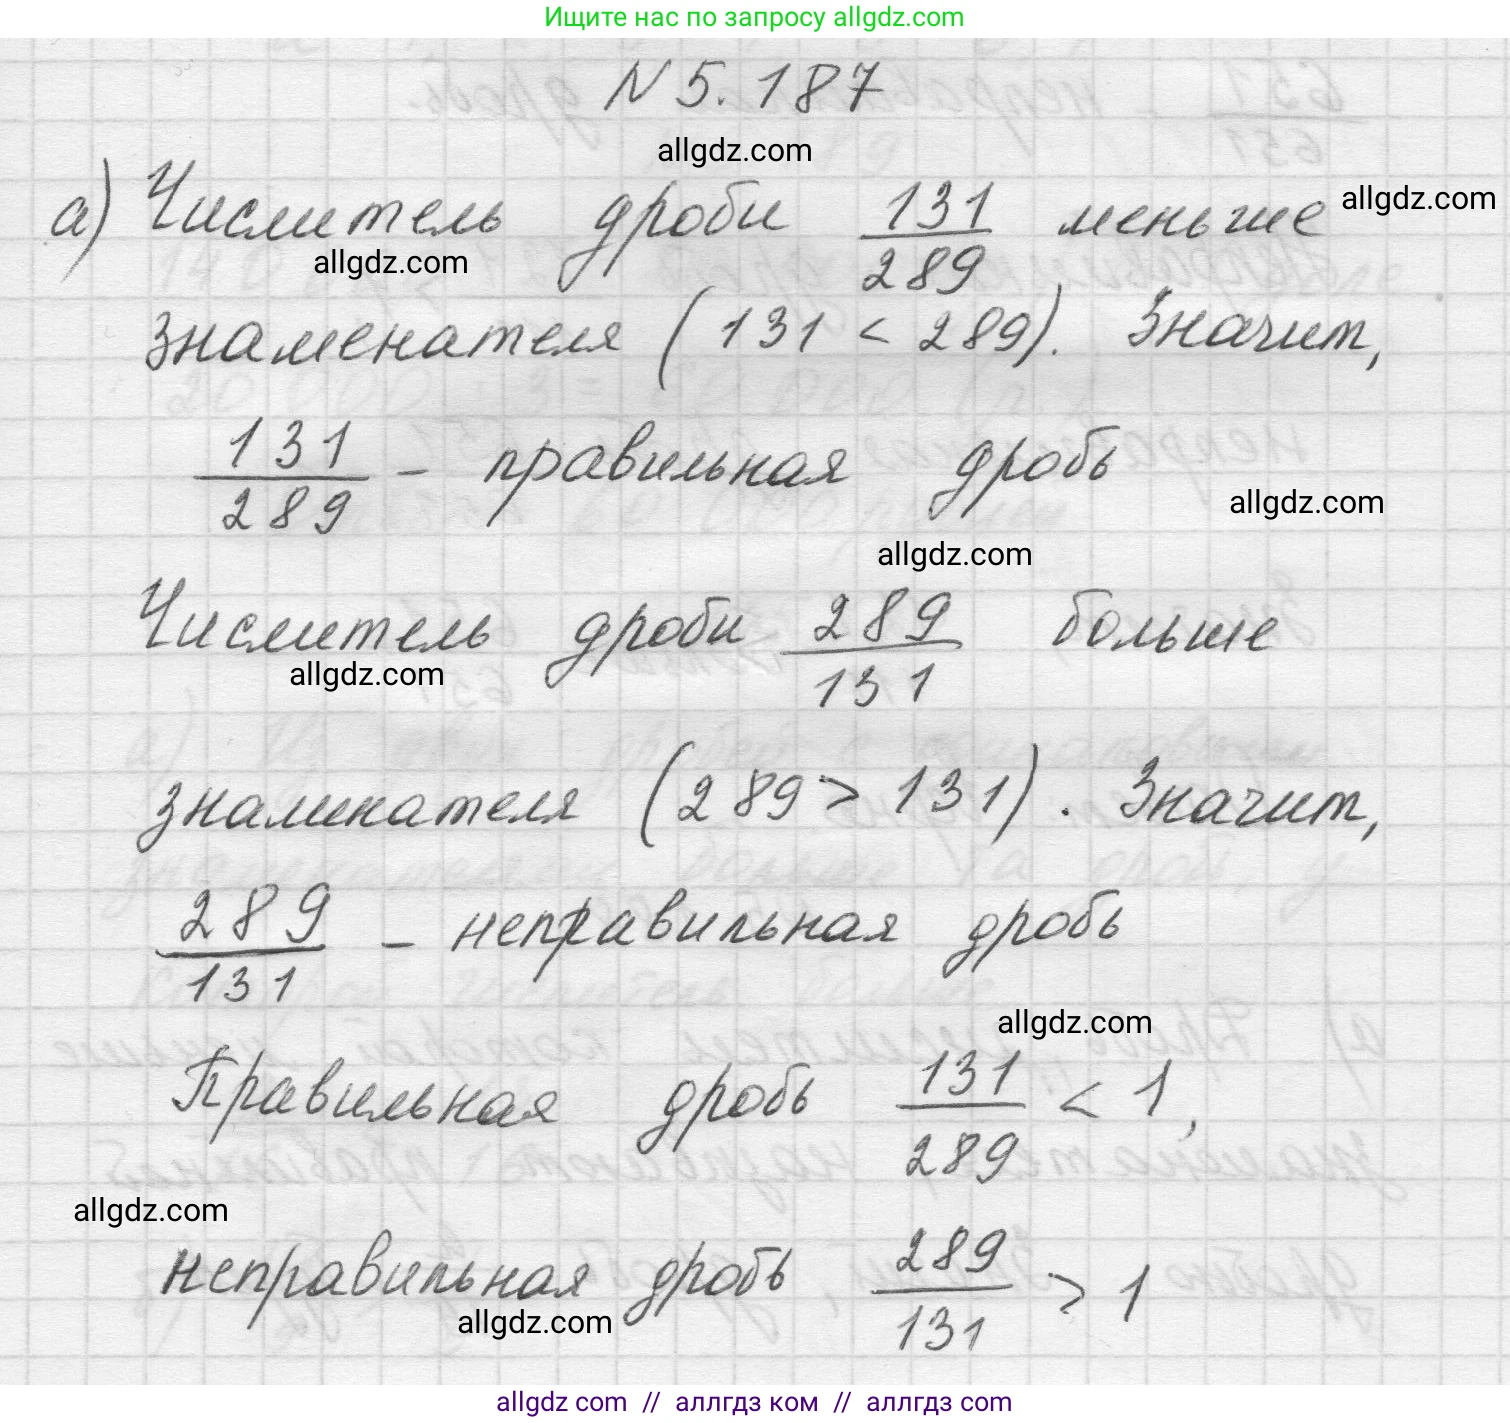 Ищите нас по запросу allgdz.com
N 5.187
allgdz.com
а) Числитель дроби 131/289 меньше
allgdz.com
allgdz.com
знаменателя (131 < 289). Значит,
131/289 - правильная дробь
allgdz.com
allgdz.com
Числитель дроби 289/131 больше
allgdz.com
знаминателя (289 > 131). Значит,
289/131 - неправильная дробь
allgdz.com
Правильная дробь 131/289 < 1,
allgdz.com
неправильная дробь 289/131 > 1
allgdz.com
allgdz com // аллгдз ком // аллгдз com